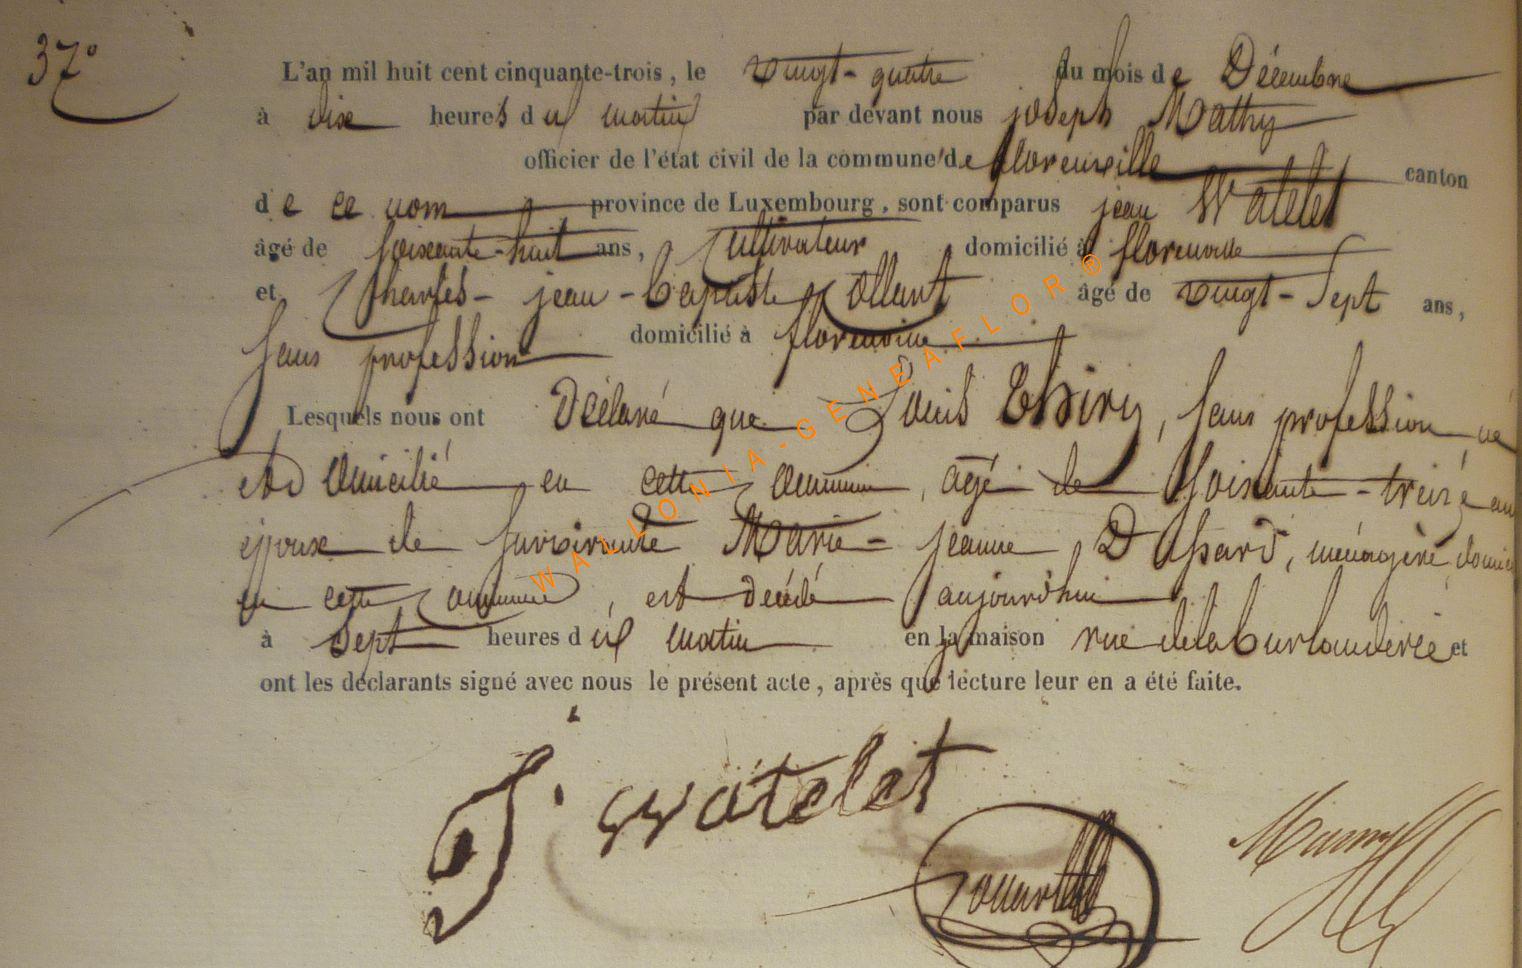 37°
L'an mil huit cent cinquante-trois, le vingt-quatre du mois de Décembre
à dix heures du matin par devant nous joseph Mathy
officier de l'état civil de la commune de florenville canton
de ce nom province de Luxembourg, sont comparus jean Watelet
âgé de soixante-huit ans, Cultivateur domicilié à florenville
et Charles-jean-Baptiste Collart âgé de vingt-sept ans,
sans profession domicilié à florenville
Lesquels nous ont Déclaré que Louis Thiry, sans profession né
et domicilié en cette commune, agé de soixante-treize ans
époux de survivante Marie-jeanne, ménagère
en cette commune, est decédé aujourdhui
à sept heures du matin en la maison rue de la et
ont les déclarants signé avec nous le présent acte, après que lecture leur en a été faite.
J. Watelet
WALLONIA-GENEAFLOR®